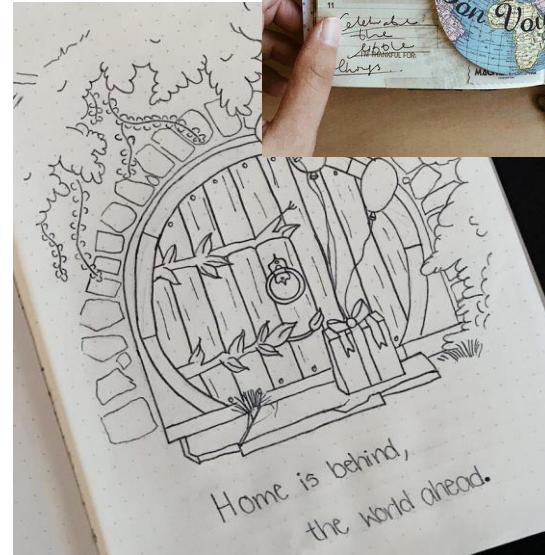 11
Celebrate
the
little
I'M THANKFUL FOR:
things.
on Voy
Home is behind,
the world ahead.